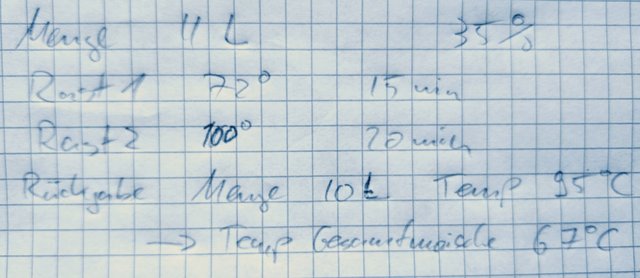 Menge 11 L 35%
Rast 1 72° 15 min
Rast 2 100° 20 min
Rückgabe Menge 10 L Temp 95°C
→ Temp Gesamtmaische 67°C